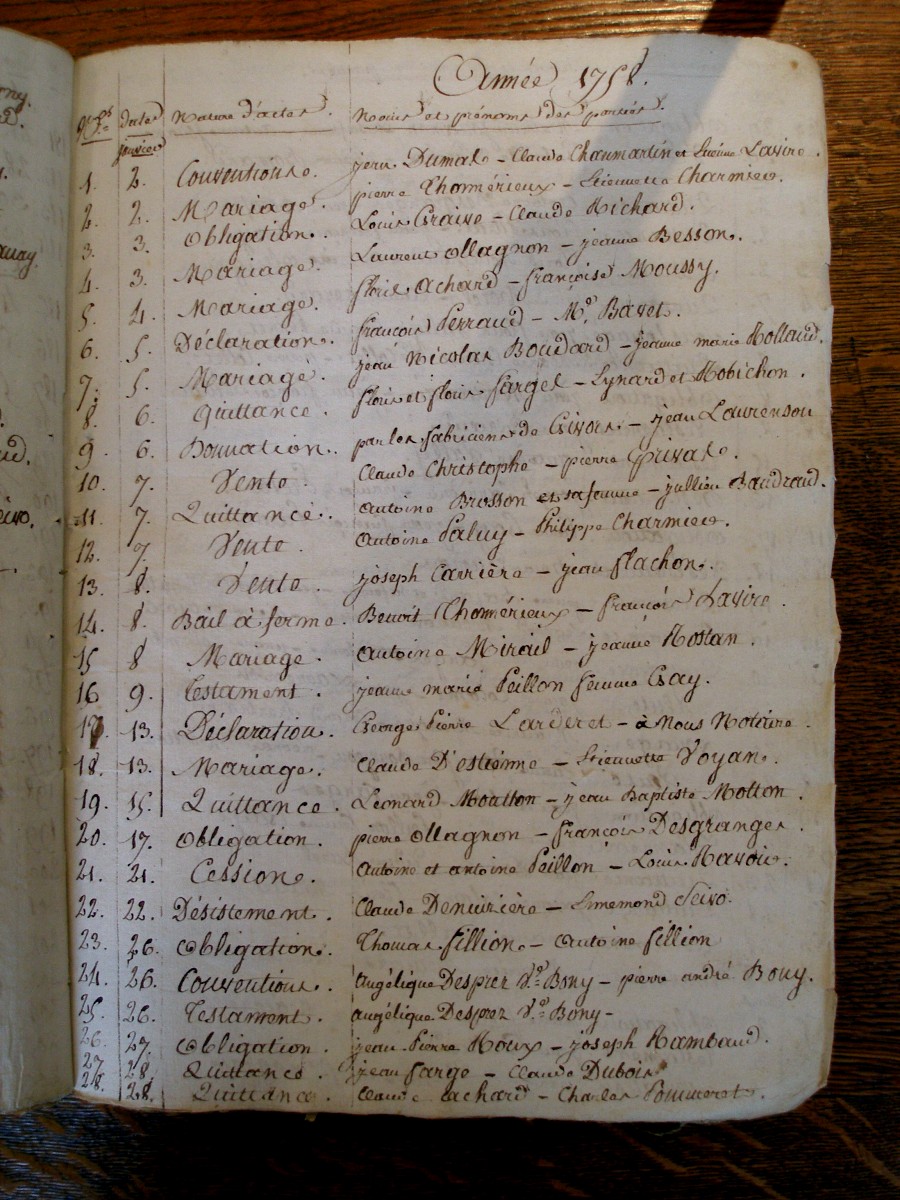 Année 1758.
Nos. Dates Nature d'actes. Noms et prénoms des parties.
janvier
1. 2. Conventions. jean Dumas - Claude Chaumartin et Lavire.
2. 2. Mariage. pierre Thomérieux - Etiennette Charmier.
3. 3. Obligation. Louis Graive - Claude Richard.
4. 3. Mariage. Laurent Ollagnon - jeanne Besson.
5. 4. Mariage. florie Achard - françoise Moussy.
6. 5. Déclaration. françois Perraud - Me. Bavet.
7. 5. Mariage. jean Nicolas Boudard - jeanne marie Rolland.
8. 6. Quittance. et fleurie farges - Lynard et Robichon.
9. 6. Donnation. par les fabriciens de Givors. - jean Laurenson
10. 7. Vente. Claude Christophe - pierre Privat.
11. 7. Quittance. Antoine Brosson et sa femme - jullien Baudrand.
12. 7. Vente. Antoine Paluy - Philippe Charmier.
13. 8. Vente. joseph Carrière - jean flachon.
14. 8. Bail à ferme. Benoit Thomérieux - françois Lavire.
15 8 Mariage. Antoine Mirail - jeanne Rostan.
16 9. Testament. jeanne marie Peillon femme Gay.
17. 13. Déclaration. George Pierre Larderet - à Nous Notaire.
18. 13. Mariage. Claude D'estienne - Etiennette Voyan.
19. 15. Quittance. Léonard Moutton - jean Baptiste Molton.
20. 17. Obligation. pierre Ollagnon - françois Desgranges.
21. 21. Cession. Antoine et antoine Peillon - Louis Ravoir.
22. 22. Désistement. Claude Denuirière - Simemond Seivo.
23. 26. Obligation. Thomas fillion - Antoine fillion
24. 26. Conventions. Angélique Desprez Ve. Bony - pierre andré Bony.
25. 26. Testament. angélique Desprez Ve. Bony -
26. 27. Obligation. jean Pierre Roux - joseph Rambaud.
27. 28. Quittance. jean farge - Claude Dubois
28. 28. Quittance. Claude achard - Charles Pommeret.